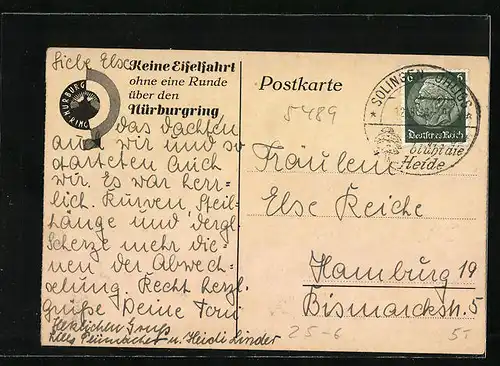 Liebe Else
Keine Eifelfahrt
ohne eine Runde
über den
Nürburgring
NÜRBURG
RING
Das dachten
auch wir und so
starteten auch
wir. Es war herr-
lich. Kurven, Steil-
hänge und dergl.
Scherze mehr die-
nen der Abwech-
selung. Recht herzl.
Grüße Deine Toni
Herzlichen Gruß
u. Heidi Linder
Postkarte
5489
* SOLINGEN-OHLIGS *
6 6
Deutsches Reich
blüht die
Heide
Fräulein
Else Reiche
Hamburg 19
Bismarckstr. 5
25-6
5,-